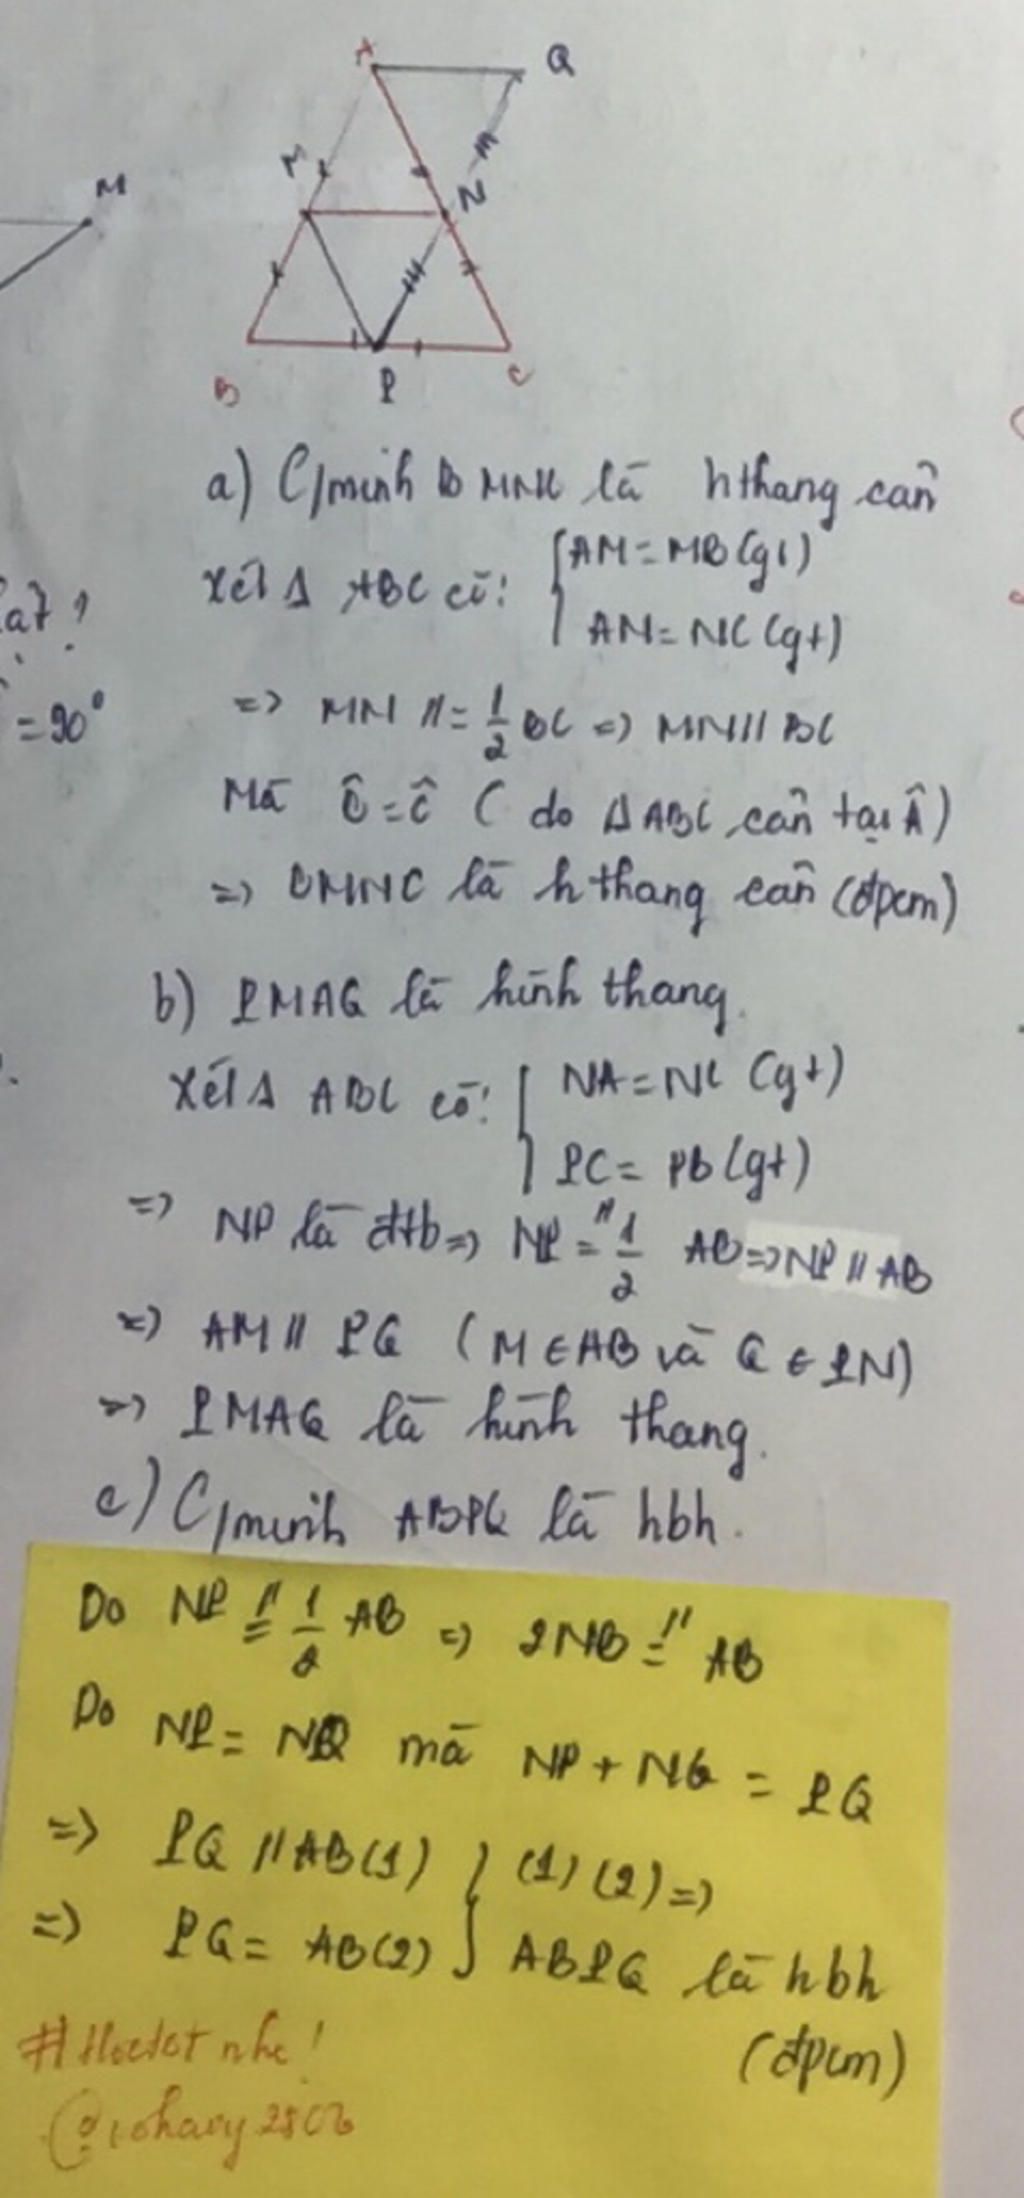 A
Q
M
M
N
B
P
C
a) C/minh BMNC là hthang cân
Xét Δ ABC có: { AM = MB (gt)
AN = NC (gt)
=> MN // = 1/2 BC => MN // BC
Mà B̂ = Ĉ ( do Δ ABC cân tại Â )
=> BMNC là hthang cân (đpcm)
at ?
= 90°
b) PMAQ là hình thang.
Xét Δ ABC có: { NA = NC (gt)
PC = PB (gt)
=> NP là đtb => NP // = 1/2 AB => NP // AB
=> AM // PQ ( M ∈ AB và Q ∈ PN )
=> PMAQ là hình thang.
c) C/minh ABPQ là hbh.
Do NP // = 1/2 AB => 2NB // = AB
Do NP = NQ mà NP + NQ = PQ
=> PQ // AB (1) } (1) (2) =>
=> PQ = AB (2) } ABPQ là hbh
(đpcm)
#Hoctot nhe!